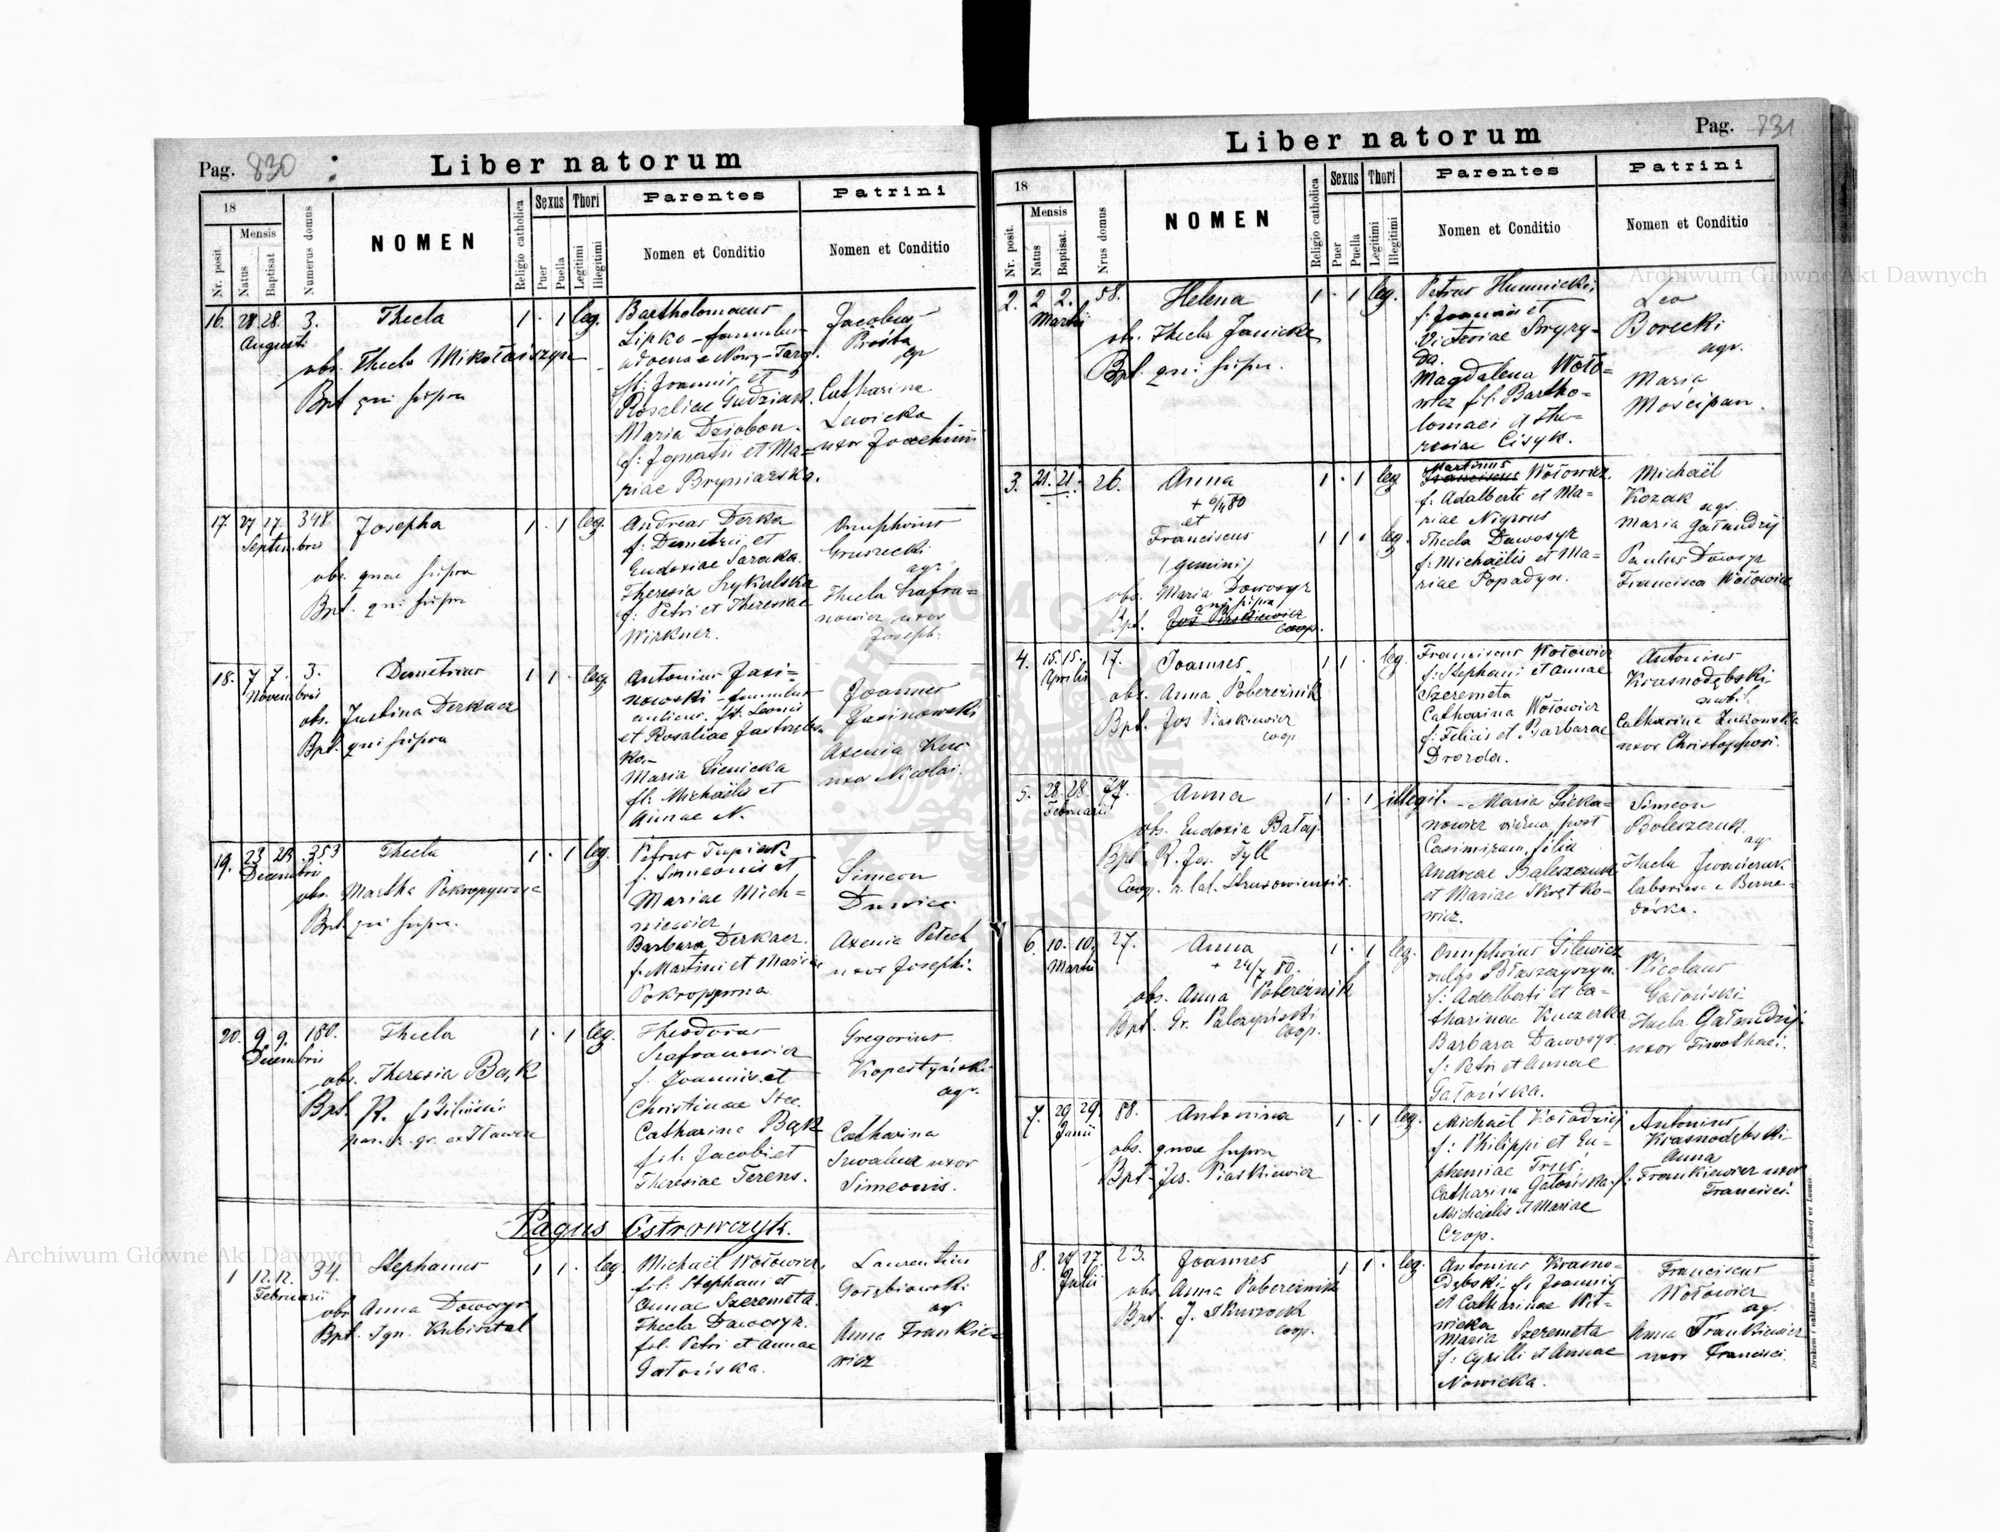 Pag. 830
Liber natorum
18
Nr. posit.
Mensis
Natus
Baptisat
Numerus domus
NOMEN
Religio catholica
Sexus
Puer
Puella
Thori
Legitimi
Illegitimi
Parentes
Nomen et Conditio
Patrini
Nomen et Conditio
16. 28. 28. 3. Thecla 1 . 1 leg. Bartholomaeus
Augusti
Lipko - famulus
advena e Nowy-Targ.
fil: Joannis et
Rosaliae Gudziak.
Maria Dziobon.
f: Ignatii et Ma=
riae Bryniarska.
Jacobus
Prośba
Catharina
Lewicka
uxor Joachimi
obs. Thecla Mikołaiszyn
Bpt qui supra
17. 27 17. 348 Josepha 1 . 1 leg. Andreas Derka
Septembris
f: Demetrii et
Eudoxiae Saraka.
Theresia Szykulska
f: Petri et Theresiae
Wirkner.
Onuphrius
Gruszecki
agr.
Thecla Szafra=
nowicz uxor
Joseph.
obs. quae supra
Bpt. qui supra
18. 7 7. 3. Demetrius 1 1 . leg. Antonius Jasi=
Novembris
nowski - famulus
fil. Leonis
et Rosaliae
Maria Sienicka
fil: Michaëlis et
Annae N.
Joannes
Jasinowski
Axenia Kuc
uxor Nicolai.
obs. Justina Derkacz
Bpt. qui supra
19. 23 23. 353 Thecla 1 . 1 leg. Petrus Tupiak
Decembris
f. Simeonis et
Mariae Mich=
niewicz
Barbara Derkacz.
f. Martini et Mariae
Pokropywna
Simeon
Axenia Petech
uxor Josephi.
obs. Martha Pokropywna
Bpt qui supra.
20. 9 9. 180. Thecla 1 . 1 leg. Theodorus
Decembris
Szafranowicz
f. Joannis et
Christinae Stec.
Catharina Bąk
fil. Jacobi et
Theresiae Terens.
Gregorius
Kopestyński
agr.
Catharina
uxor
Simeonis.
obs. Theresia Bąk
Bpt. R.
Pagus Ostrowczyk.
1 12. 12. 34. Stephanus 1 1 . leg. Michaël Wołowicz.
Februarii
fil. Stephani et
Annae Szeremeta.
Thecla Dawosyr.
fil. Petri et Annae
Gatońska.
Laurentius
Gołębiowski
ag.
Anna Frankie=
wicz
obs Anna Dawosyr
Bpt. Ign. Kubisztal
Pag. 831
Liber natorum
18
Nr. posit.
Mensis
Natus
Baptisat.
Nrus domus
NOMEN
Religio catholica
Sexus
Puer
Puella
Thori
Legitimi
Illegitimi
Parentes
Nomen et Conditio
Patrini
Nomen et Conditio
2. 2 2. 58. Helena 1 . 1 leg. Petrus Humnicki,
Martii
f: Joannis et
Victoriae
Magdalena Woło=
wicz fil. Bartho=
lomaei et The=
resiae Cisyk.
Leo
Borecki
agr.
Maria
Mościpan.
obs. Thecla Janicka
Bpt. qui supra.
3. 21. 21. 26. Anna 1 . 1 leg. Martinus
Franciscus Wołowicz.
f. Adalberti et Ma=
riae
Thecla Dawosyr
f: Michaëlis et Ma=
riae Popadyn.
Michaël
Kozak
agr.
Maria Gałandzij
Paulus Dawosyr
Francisca Wołowicz
+ 6/4 80
et
Franciscus 1 1 . leg.
(gemini)
obs. Maria Dawosyr
qui supra
Bpt. Jos Piaskiewicz
coop.
4. 15. 15. 17. Joannes. 1 1 . leg. Franciscus Wołowicz
Aprilis
f: Stephani et Annae
Szeremeta
Catharina Wołowicz
f: Felicis et Barbarae
Drozda.
Antonius
Krasnodębski
Catharina Żukowska
uxor Christophori.
obs. Anna Pobereżnik
Bpt. Jos Piaskiewicz
coop.
5. 28. 28. 77. Anna 1 . 1 illegit. - Maria Sieka=
Februarii
nowicz vidua post
Casimirum, filia
Andreae Baleszczuk
et Mariae Skrętko=
wicz.
Simeon
Boleszczuk.
ag.
Thecla Iwasieczuk
e Berna=
dówka.
obs. Eudoxia Bałaj
Bpt. R. Jos. Tyll
Coop. r. lat. Strusowiensis.
6. 10. 10. 27. Anna 1 . 1 leg. Onuphrius Gilewicz
Martii
vulgo Błaszczyszyn.
f: Adalberti et Ca=
tharinae Kuczerka
Barbara Dawosyr.
f: Petri et Annae
Gatońska.
Nicolaus
Gatoński
Thecla Gałandzij
uxor Timothaei.
+ 24/7 80.
obs. Anna Pobereżnik
Bpt. Gr. Palczyński
coop.
7. 29 29. 88. Antonina 1 . 1 leg. Michaël Kołodziej
Junii
f: Philippi et Eu=
phemiae Truś,
Catharina Gatońska f:
Michaëlis et Mariae
Czop.
Antonius
Krasnodębski
Anna
Frankiewicz uxor
Francisci.
obs. quae supra
Bpt. Jos. Piaskiewicz
8. 27 27. 23. Joannes 1 1 . leg. Antonius Krasno=
Julii
dębski f: Joannis
et Catharinae Wit=
wicka
Maria Szeremeta
f: Cyrilli et Annae
Nowicka.
Franciscus
Wołowicz
ag.
Anna Frankiewicz
uxor Francisci.
obs Anna Pobereżnik
Bpt. J. Skurzock
coop.
Archiwum Główne Akt Dawnych
Archiwum Główne Akt Dawnych